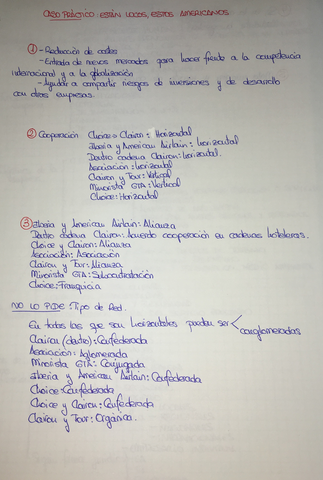 CASO PRÁCTICO: ESTÁN LOCOS, ESTOS AMERICANOS
① - Reducción de costes
- Entrada de nuevos mercados para hacer frente a la competencia
internacional y a la globalización
- Ayudar a compartir riesgos de inversiones y de desarrollo
con otras empresas.
② Cooperación Choice y Clairon: Horizontal
Iberia y American Airlain: horizontal
Dentro cadena Clairon: horizontal.
Asociación: horizontal
Clairon y Tour: Vertical
Minorista GTA: Vertical
Choice: Horizontal
③ Iberia y American Airlain: Alianza
Dentro cadena Clairon: Acuerdo cooperación en cadenas hoteleras.
Choice y Clairon: Alianza
Asociación: Asociación
Clairon y Tour: Alianza
Minorista GTA: Subcontratación
Choice: Franquicia
NO LO PIDE: Tipo de Red.
En todas las que son horizontales pueden ser < conglomeradas
Clairon (dentro): Confederada
Asociación: Aglomerada
Minorista GTA: Conjugada
Iberia y American Airlain: Confederada
Choice: Confederada
Choice y Clairon: Confederada
Clairon y Tour: Orgánica.